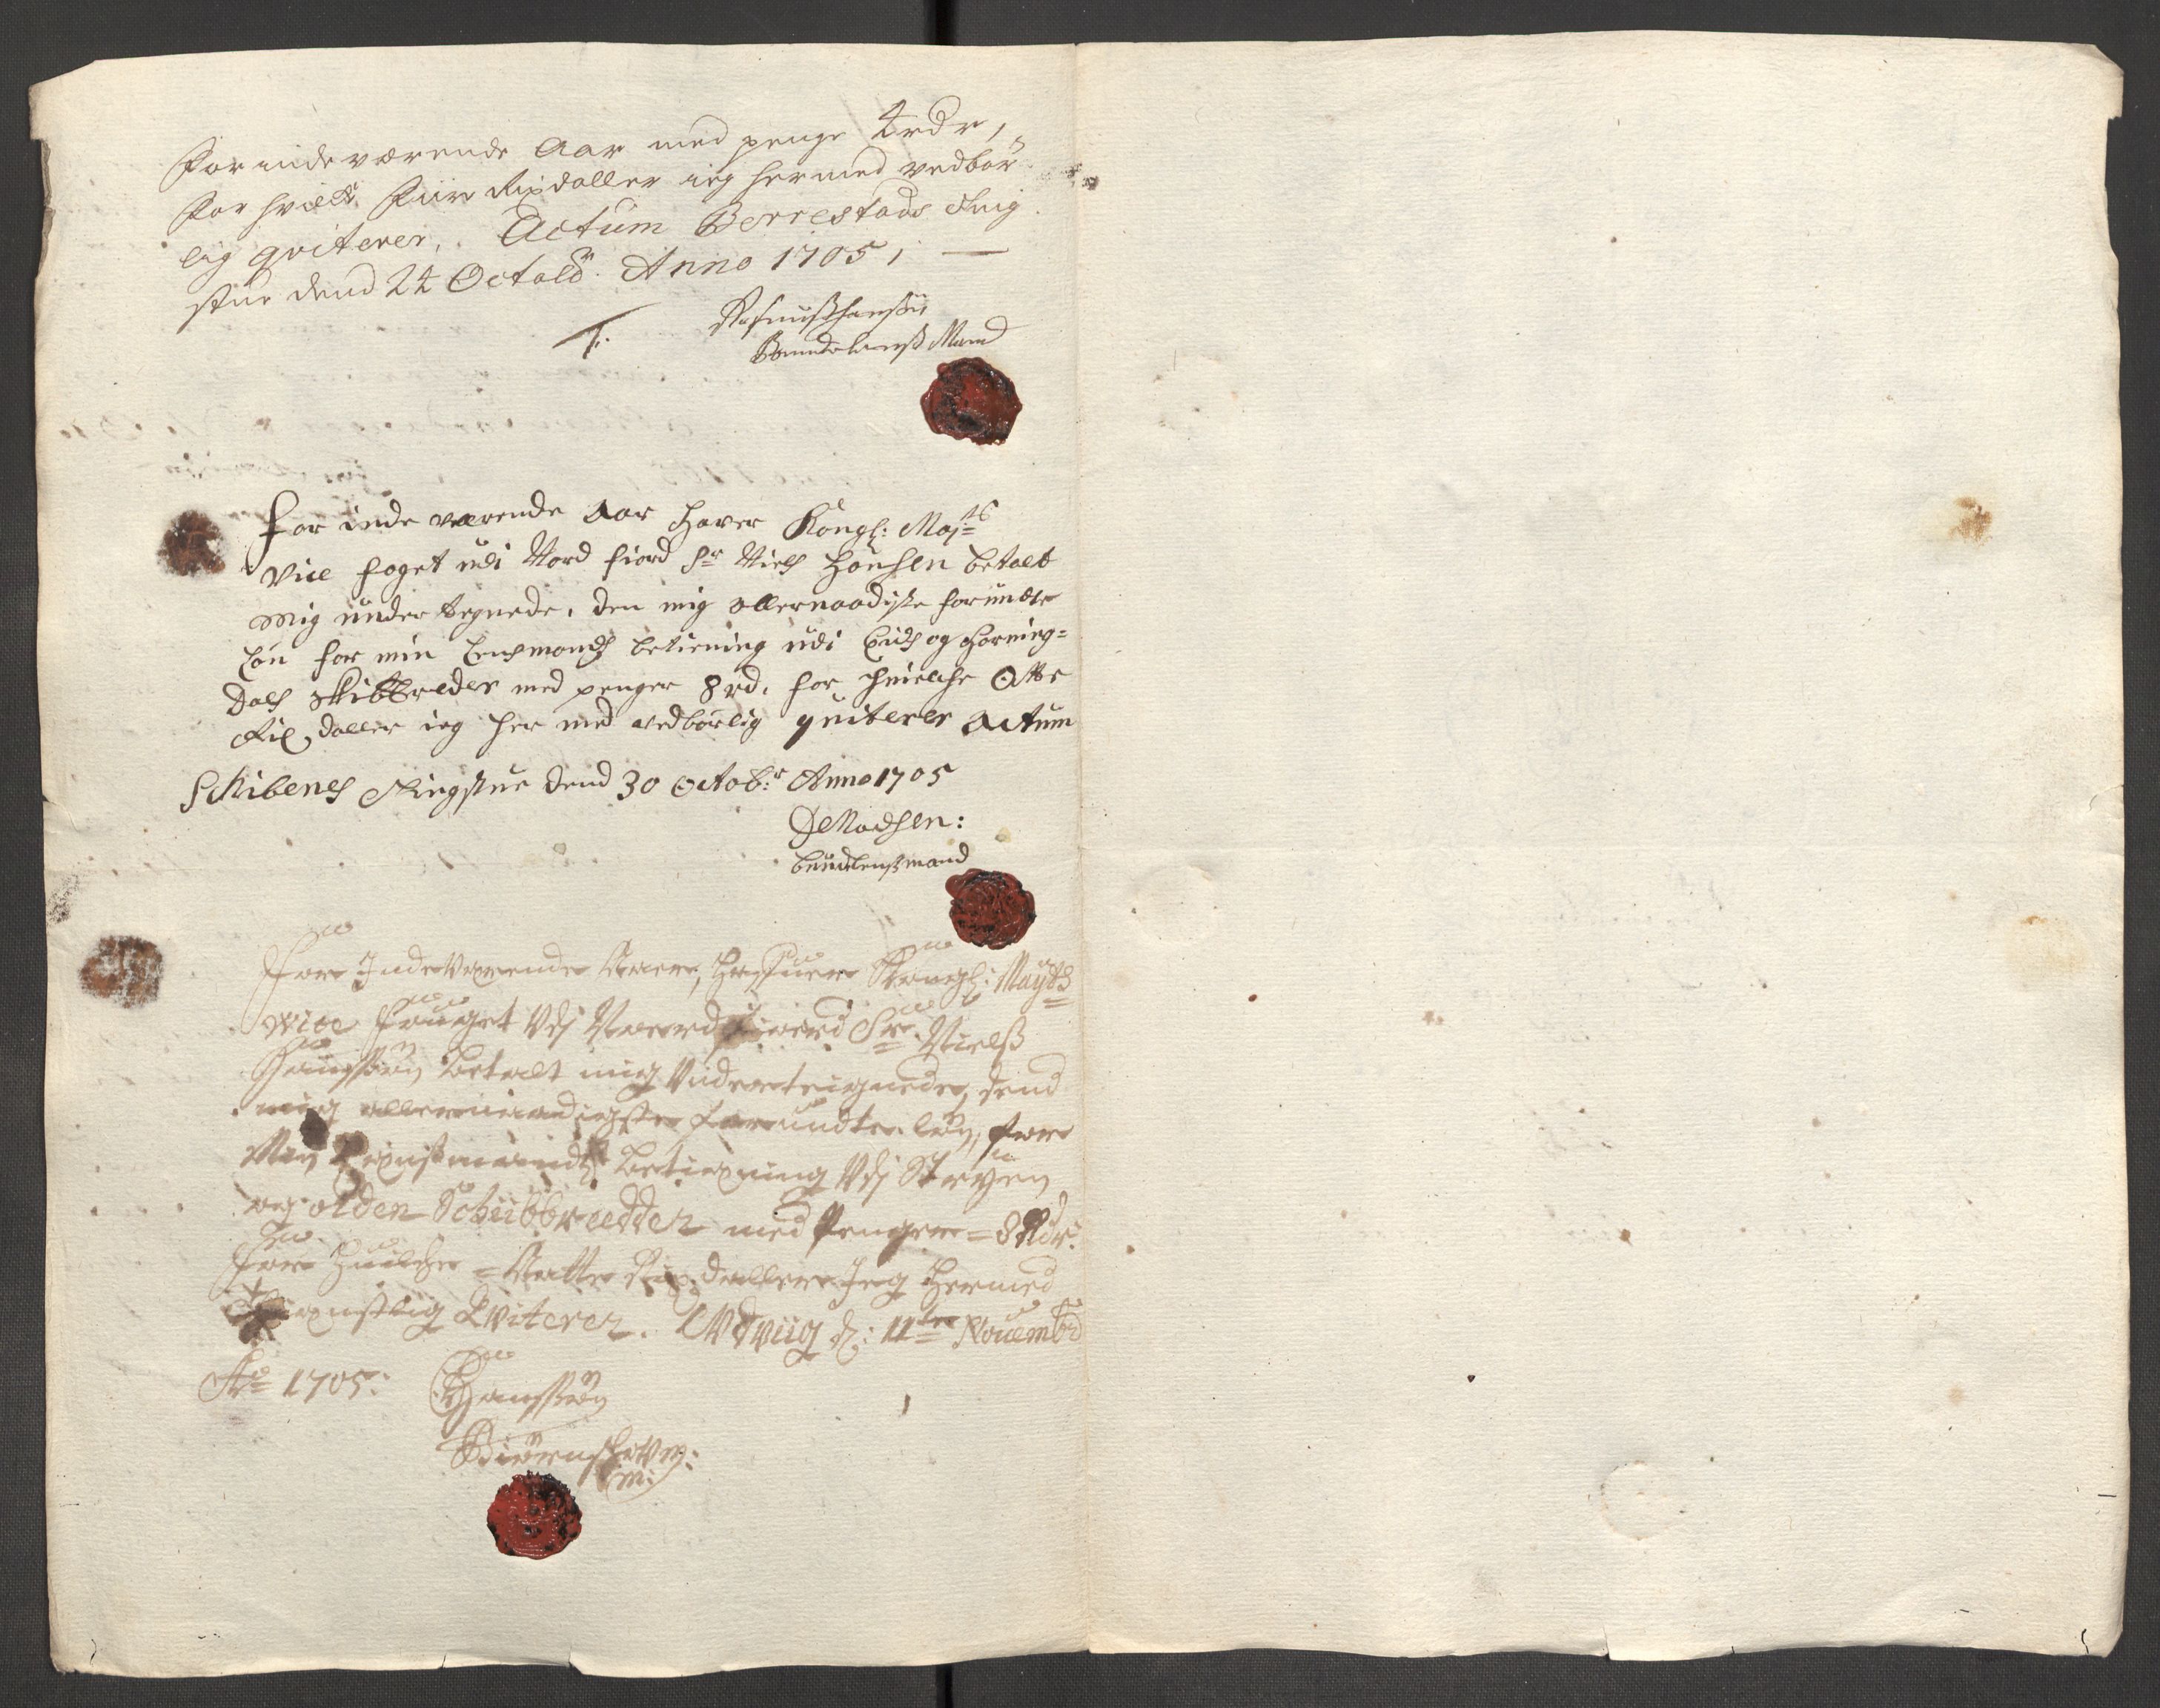 For inde værende Aar med penge 4rdr,
for hvilke Fiire Rixdaller ieg hermed vedbør
lig qviterer, Actum Berrestads ting
stue dend 24 Octobr. Anno 1705,
Rasmus Hansen
Bonde Lens Mand
For inde værende Aar haver Kongl: Maj:ts
Vice foget udi Nord fiord Sr Niels Hansen betalt
mig under tegnede, den mig allernaadigste forundte
løn for min Lensmands betiening udi Eids og Horning=
dals Skibbreder med penger 8rd, for huilche Otte
Rix daller ieg her med vedbørlig quiterer Actum
Schibenes tingstue dend 30 Octob:r Anno 1705
Madsen:
bundelensmand
For Inde Værende Aaer, Haffuer Kongl: Mayts
vice Fouget Vdj Noerd fioerd Sr. Nielß
Hanssøn betalt mig Vnderteignede, dend
mig allernaadigste forundte løn, for
Min Lensmands betiening Vdj Stryen
og olden Schibbredder med Penger = 8 Rdr:
for Huilche = Aatte Rix daller Jeg Hermed
Qviterer. Vdviig d: 11te Nouembr
Ao 1705:
Hanssøn